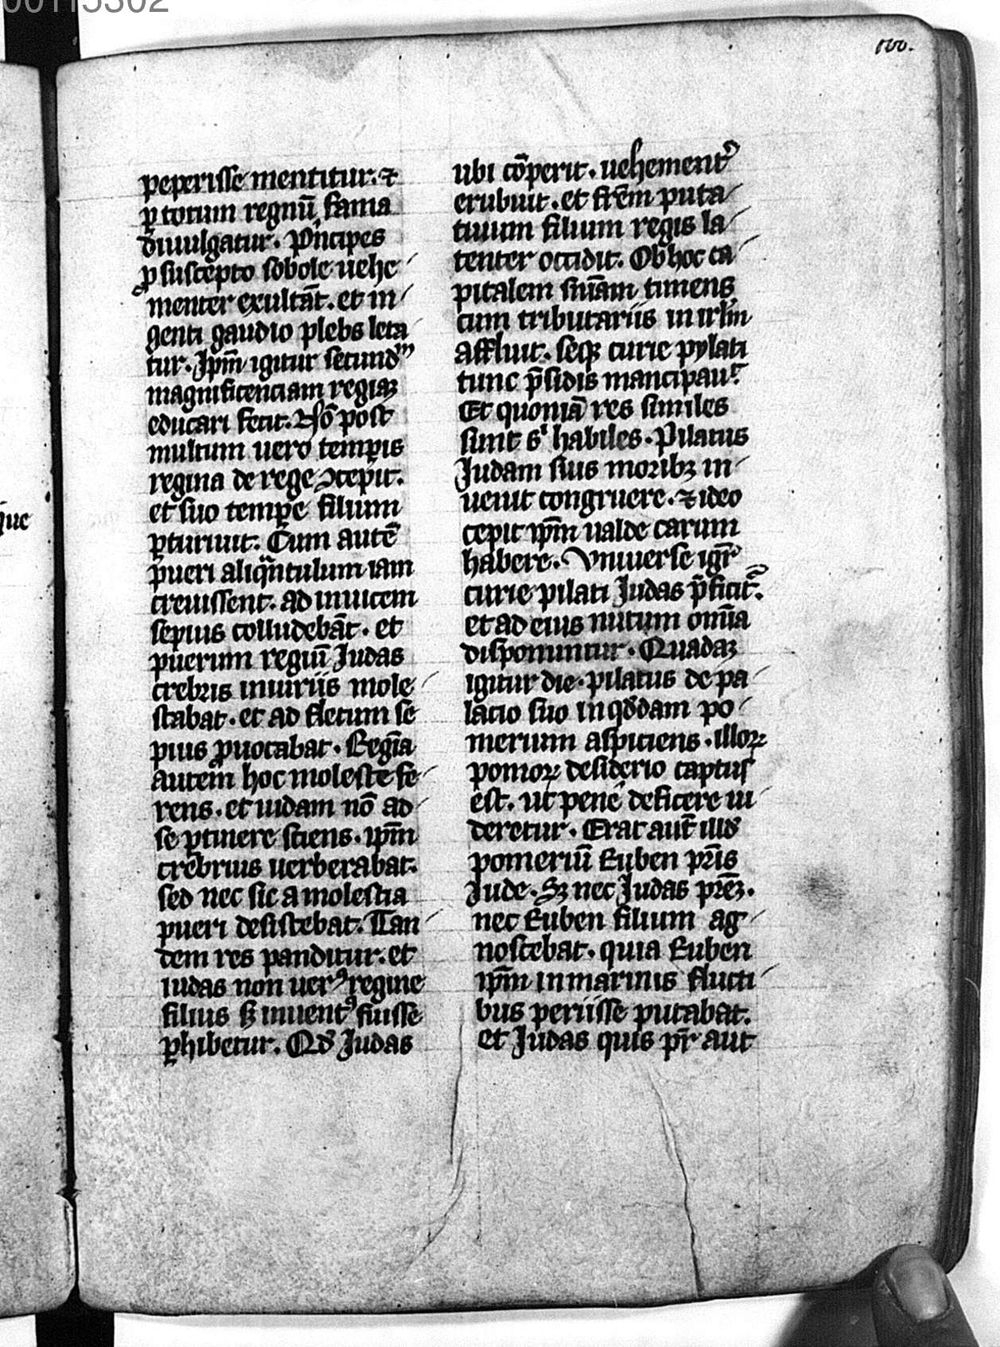 peperisse mentitur. ⁊
ꝑ totum regnū fama
diuulgatur. Pͥncipes
ꝓ suscepto sobole uehe
menter exultāt. et in
genti gaudio plebs leta
tur. Ip̄m igitur secundᵐ
magnificenciam regiaꝫ
educari fecit. Nō post
multum uero tempꝰis
regina de rege ↄcepit.
et suo tempꝰe filium
ꝑturiuit. Cum autē
pueri aliqͣntulum iam
creuissent. ad inuicem
sepius colludebāt. et
puerum regiū Judas
crebris iniuriis mole
stabat. et ad fletum se
pius ꝓuocabat. Regīa
autem hoc moleste fe
rens. et iudam nō ad
se ꝑtinere sciens. ip̄m
crebrius uerberabat.
sed nec sic a molestia
pueri desistebat. Tan
dem res panditur. et
iudas non uerꝰ regine
filius ß inuentꝰ fuisse
ꝑhibetur. Qd̛ Judas
ubi cōperit. uehementꝰ
erubuit. et fr̄em puta
tiuum filium regis la
tenter occidit. Ob hoc ca
pitalem sn̄iam timens
cum tributariis in irl̄m
affluit. seqꝫ curie pylati
tunc p̄sidis mancipauͭ.
Et quoniā res similes
sunt sͥ habiles. Pilatus
Judam suis moribꝫ in
uenit congruere. ⁊ ideo
cepit ip̄m ualde carum
habere. Vniuerse igͥr
curie pilati Judas p̄ficitᷣ.
et ad eius nutum om̄ia
disponuntur. Quadaꝫ
igitur die. pilatus de pa
lacio suo in qͦddam po
merium aspiciens. illoꝝ
pomoꝝ desiderio captus
est. ut pene deficere ui
deretur. Erat aut̄ illd̛
pomeriū Ruben pr̄is
Jude. Sꝫ nec Judas pr̄eꝫ.
nec Ruben filium ag
noscebat. quia Ruben
ip̄m in marinis flucti
bus periisse putabat.
et Judas quis pr̄ aut